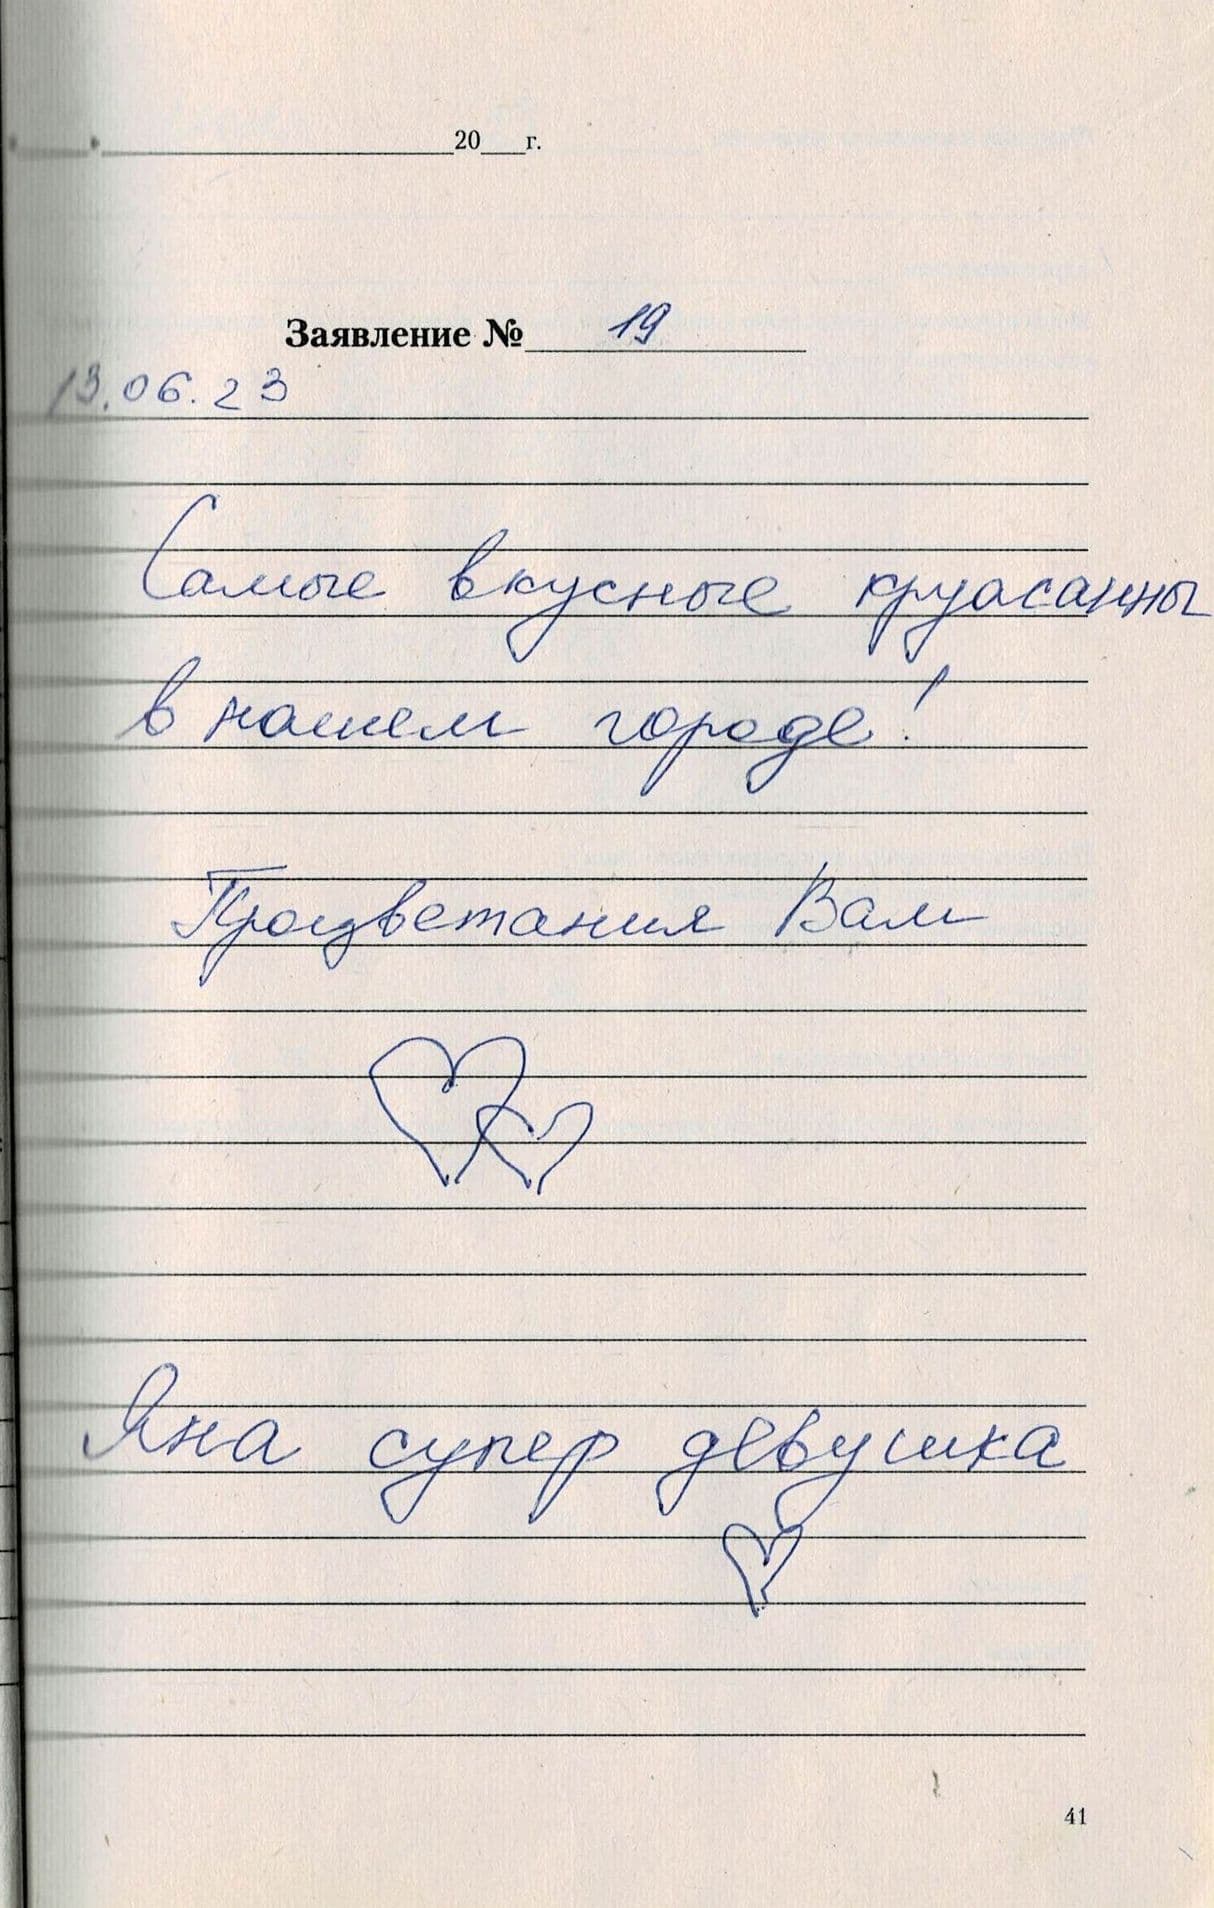 20___г.
Заявление № 19
13.06.23
Самые вкусные круасанны
в нашем городе!
Процветания Вам
Яна супер девушка
41